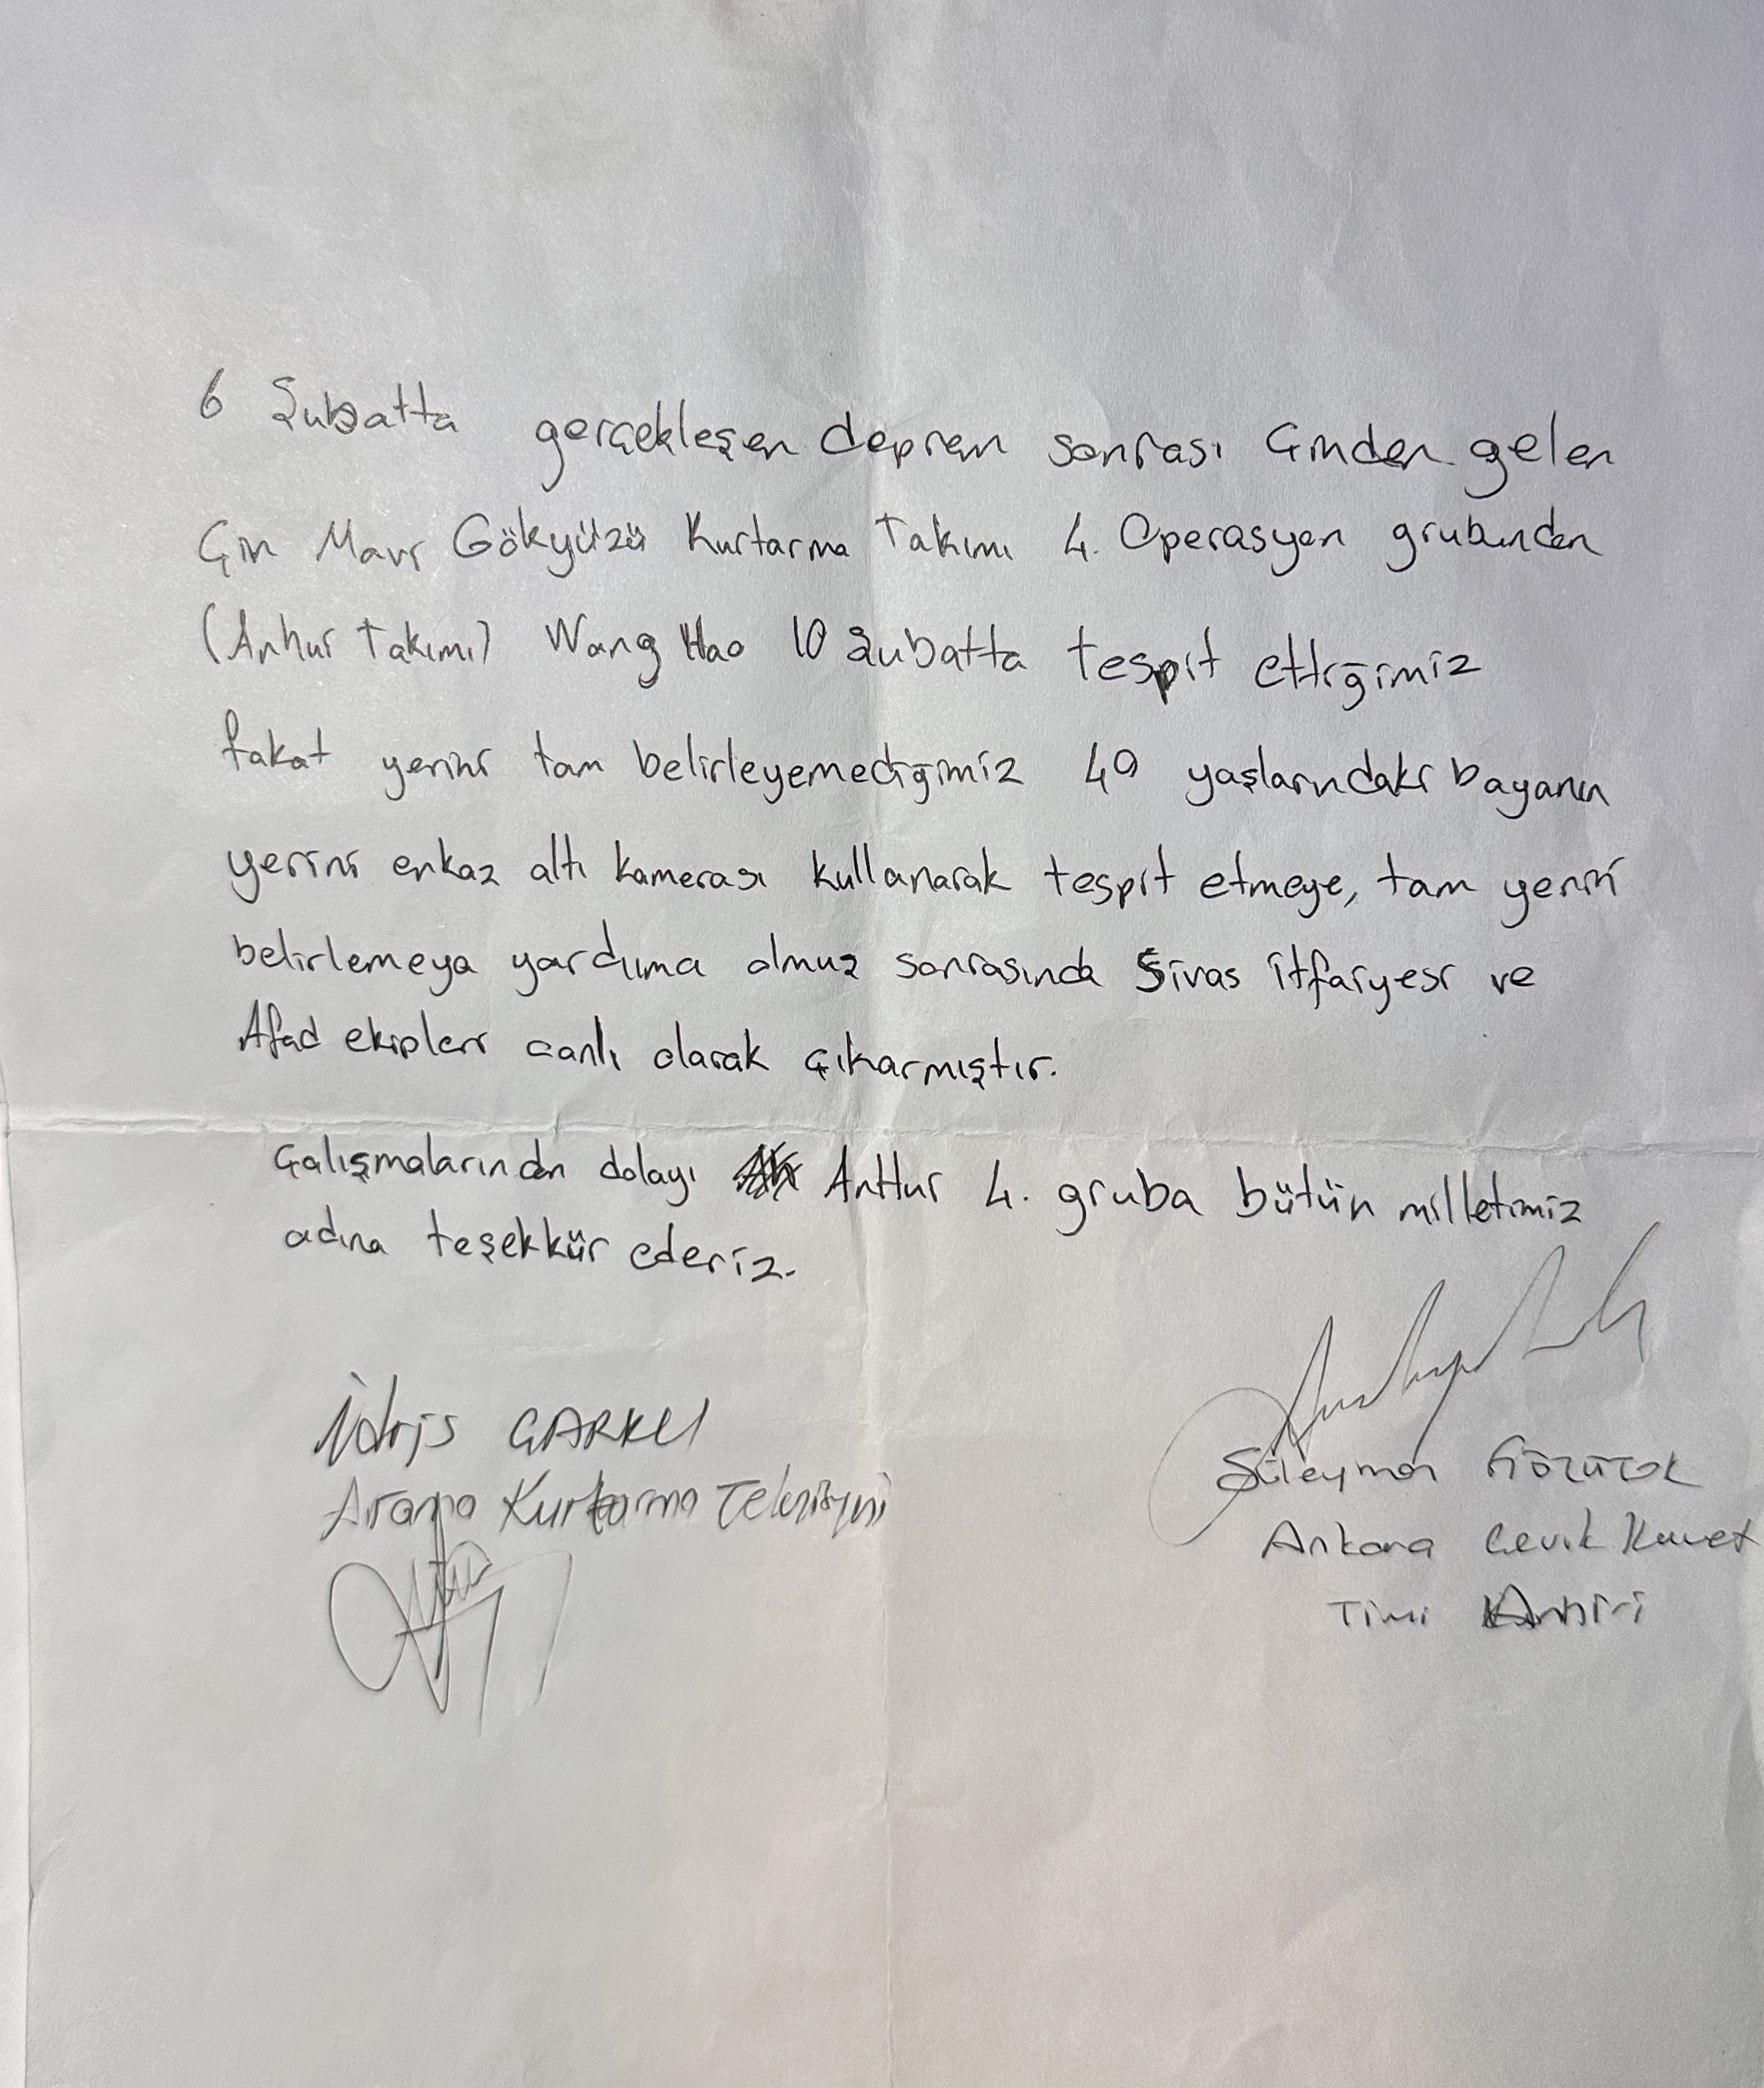 6 Şubatta gerçekleşen deprem sonrası Çinden gelen
Çin Mavi Gökyüzü Kurtarma Takımı 4. Operasyon grubundan
(Anhur Takımı) Wang Hao 10 Şubatta tespit ettiğimiz
fakat yerini tam belirleyemediğimiz 40 yaşlarındaki bayanın
yerini enkaz altı kamerası kullanarak tespit etmeye, tam yerini
belirlemeya yardımcı olmuş sonrasında Sivas itfaiyesi ve
Afad ekipleri canlı olarak çıkarmıştır.
Çalışmalarından dolayı AnHur 4. gruba bütün milletimiz
adına teşekkür ederiz.
İdris ÇARKCI
Arama Kurtarma Teknisyeni
Süleyman
Ankara Çevik Kuvvet
Timi